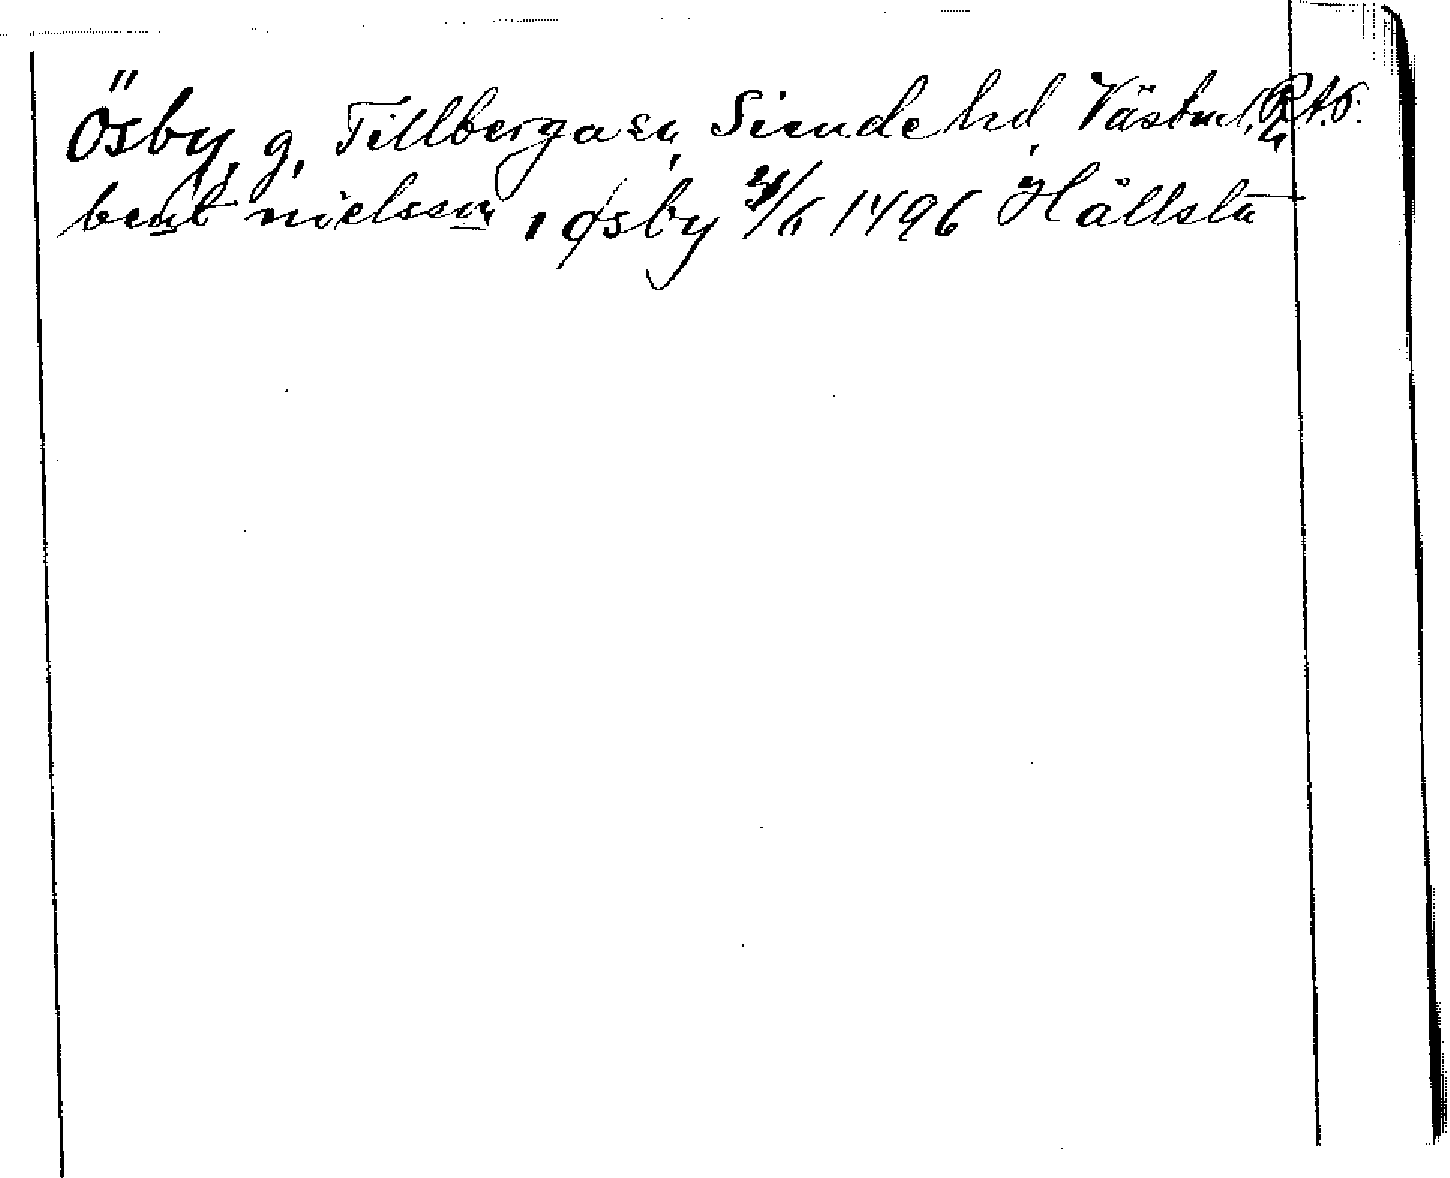 Ösby, g, Tillberga sn, Siende hd, Västml, R.A.P.
bent nielsson, i øsby 4/6 1496 Hällsta